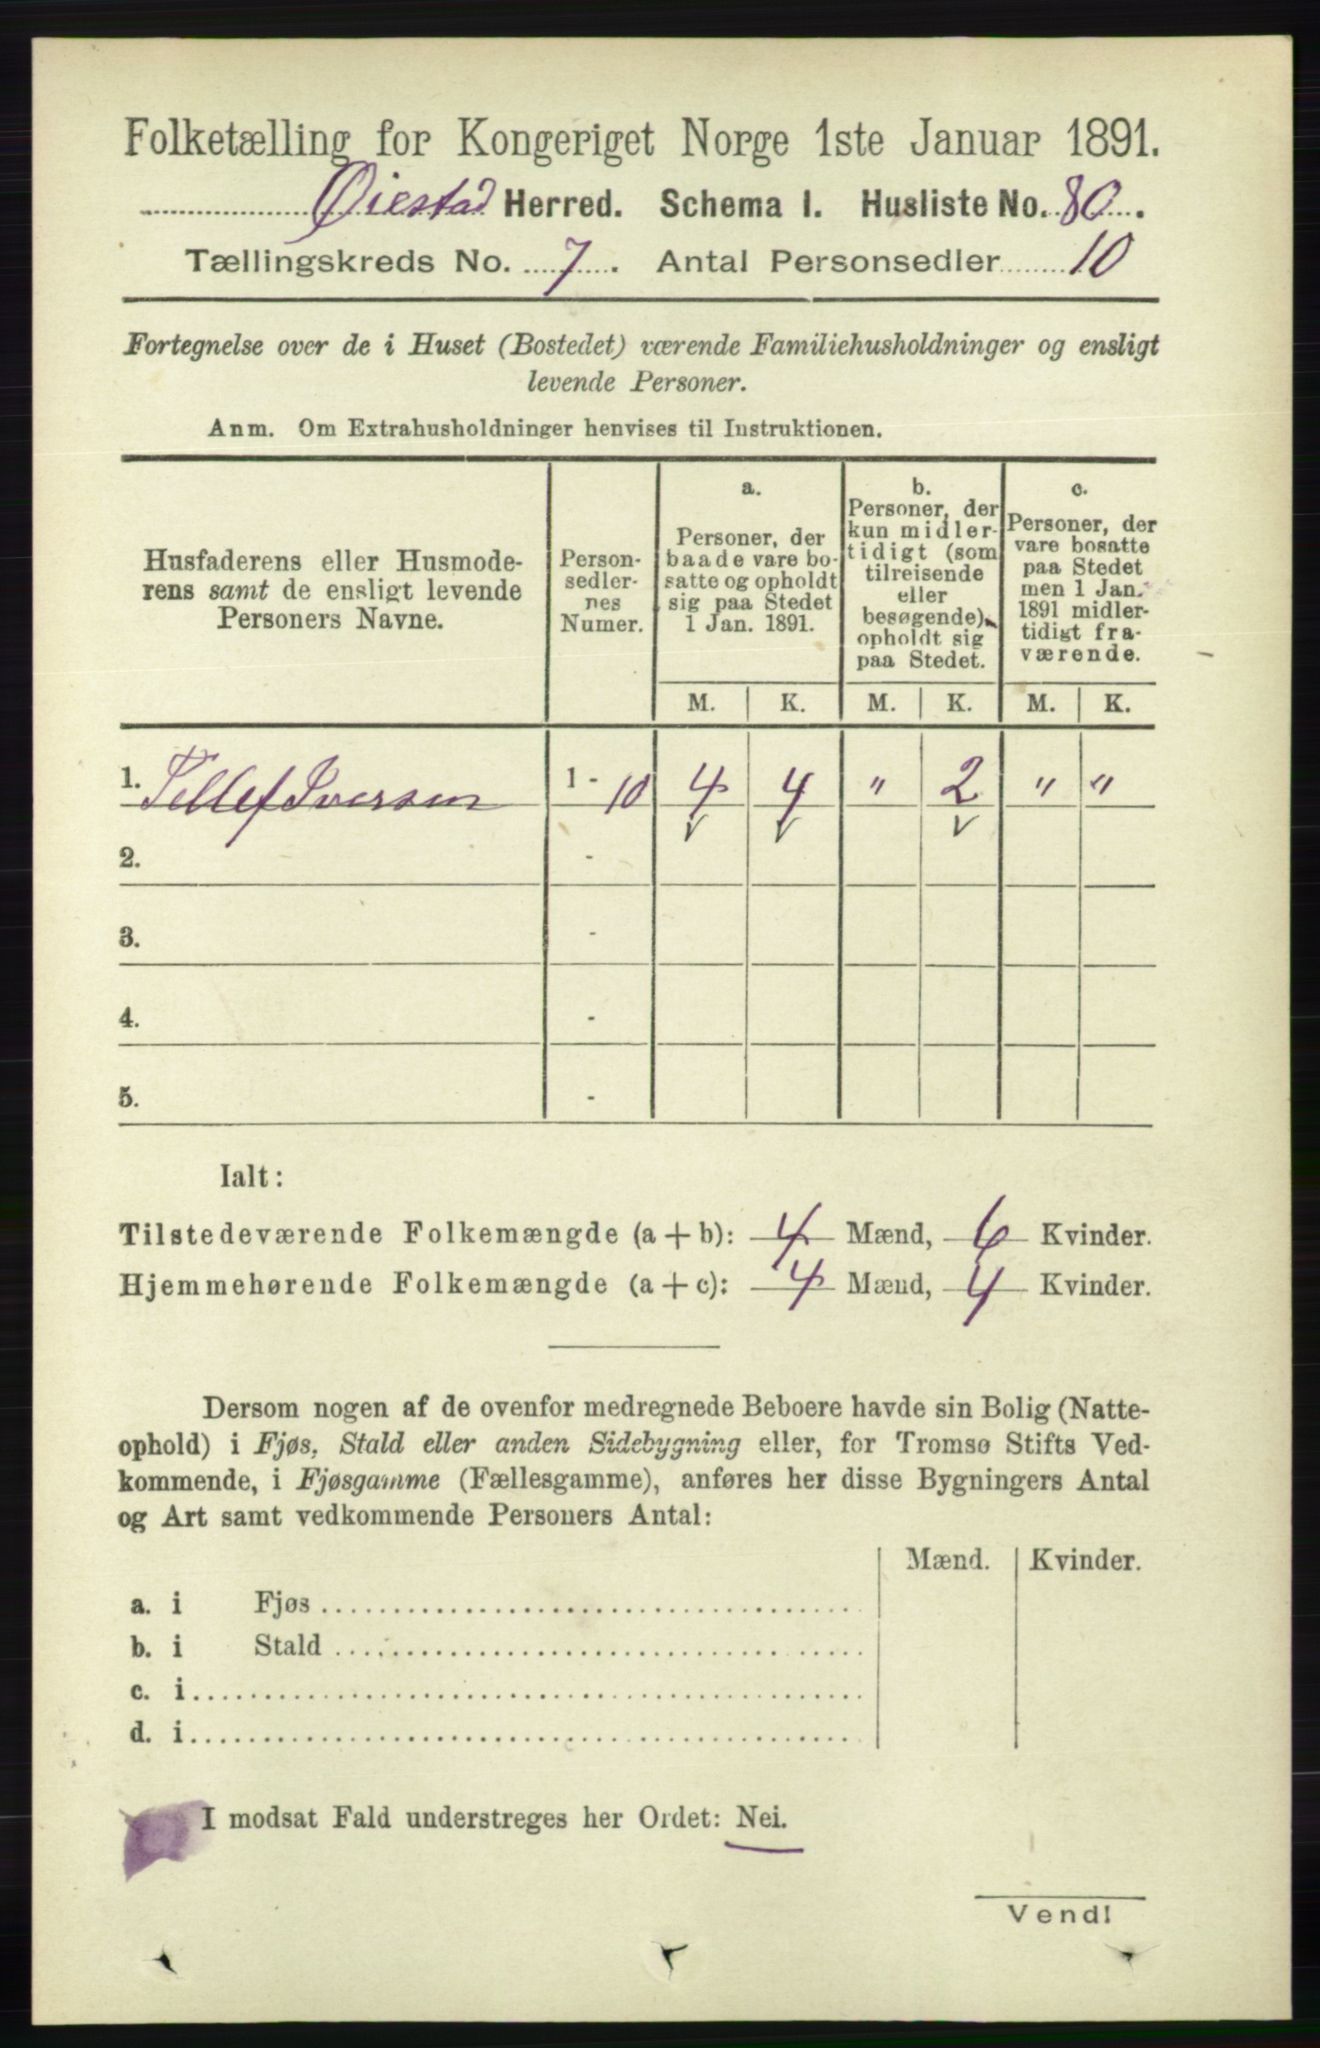 Folketælling for Kongeriget Norge 1ste Januar 1891.
Øiestad Herred. Schema I. Husliste No. 80.
Tællingskreds No. 7. Antal Personsedler 10
Fortegnelse over de i Huset (Bostedet) værende Familiehusholdninger og ensligt
levende Personer.
Anm. Om Extrahusholdninger henvises til Instruktionen.
Husfaderens eller Husmode-
rens samt de ensligt levende
Personers Navne.
Person-
sedler-
nes
Numer.
a.
Personer, der
baade vare bo-
satte og opholdt
sig paa Stedet
1 Jan. 1891.
b.
Personer, der
kun midler-
tidigt (som
tilreisende
eller
besøgende)
opholdt sig
paa Stedet.
c.
Personer, der
vare bosatte
paa Stedet
men 1 Jan.
1891 midler-
tidigt fra-
værende.
M. K. M. K. M. K.
1. Tellef Iversen 1 - 10 4 4 " 2 " "
2. -
3. -
4. -
5. -
Ialt:
Tilstedeværende Folkemængde (a + b): 4 Mænd, 6 Kvinder.
Hjemmehørende Folkemængde (a + c): 4 Mænd, 4 Kvinder.
Dersom nogen af de ovenfor medregnede Beboere havde sin Bolig (Natte-
ophold) i Fjøs, Stald eller anden Sidebygning eller, for Tromsø Stifts Ved-
kommende, i Fjøsgamme (Fællesgamme), anføres her disse Bygningers Antal
og Art samt vedkommende Personers Antal:
Mænd. Kvinder.
a. i Fjøs
b. i Stald
c. i
d. i
I modsat Fald understreges her Ordet: Nei.
Vend!